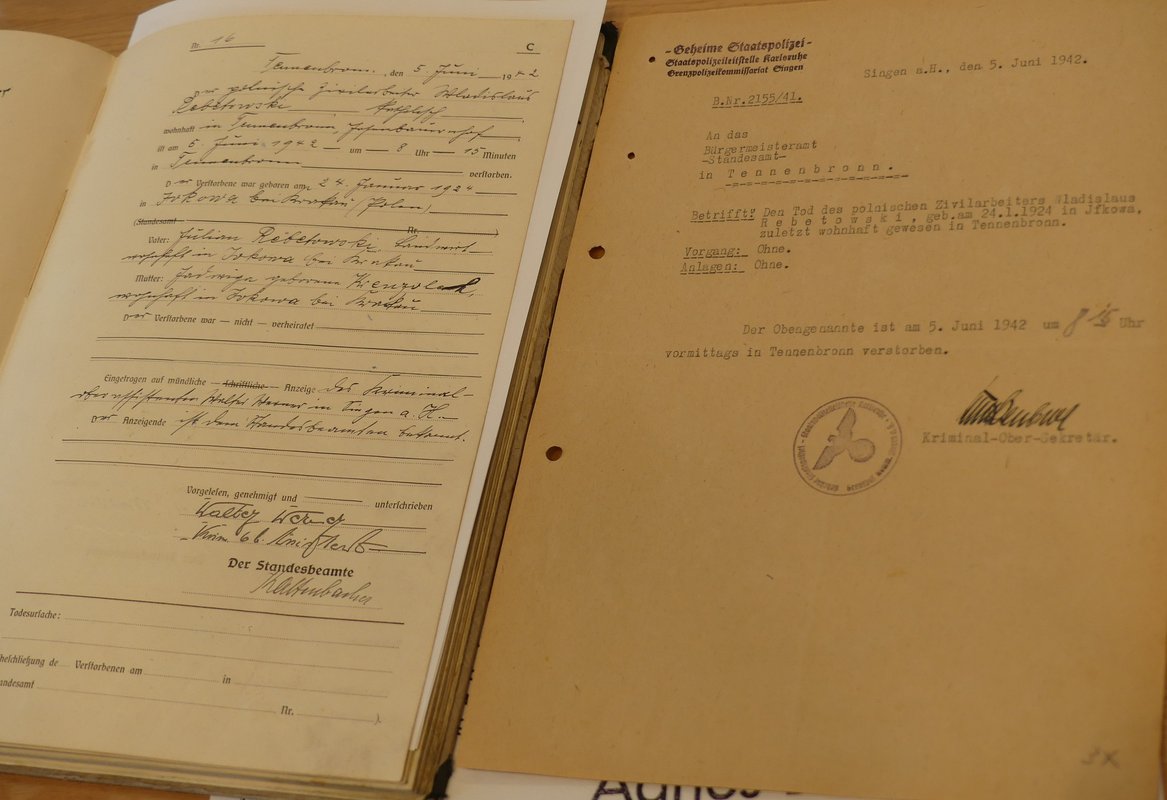 Nr. 16
C
Tennenbronn, den 5. Juni 1942
Der polnische Zivilarbeiter Wladislaus
Rebetowski, katholisch
wohnhaft in Tennenbronn
ist am 5. Juni 1942 um 8 Uhr 15 Minuten
in Tennenbronn verstorben.
Der Verstorbene war geboren am 24. Januar 1924
in Jokowa bei Krakau (Polen)
(Standesamt Nr. )
Vater: Julian Rebetowski, Landwirt
wohnhaft in Jokowa bei Krakau
Mutter: Jadwiga geborene
wohnhaft in Jokowa bei Krakau
Der Verstorbene war — nicht — verheiratet
Eingetragen auf mündliche — schriftliche — Anzeige des Kriminal-
oberassistenten Walter Werner in Singen a. H.
Der Anzeigende ist dem Standesbeamten bekannt.
Vorgelesen, genehmigt und unterschrieben
Walter Werner
Der Standesbeamte
Kaltenbacher
Todesursache:
Verstorbenen am in
Nr. )
-Geheime Staatspolizei-
Staatspolizeileitstelle Karlsruhe
Grenzpolizeikommissariat Singen
Singen a.H., den 5. Juni 1942.
B.Nr.2155/41.
An das
Bürgermeisteramt
-Standesamt-
in Tennenbronn.
Betrifft: Den Tod des polnischen Zivilarbeiters Wladislaus
Rebetowski, geb.am 24.1.1924 in Jfkowa,
zuletzt wohnhaft gewesen in Tennenbronn.
Vorgang: Ohne.
Anlagen: Ohne.
Der Obengenannte ist am 5. Juni 1942 um 8 15 Uhr
vormittags in Tennenbronn verstorben.
Kriminal-Ober-Sekretär.